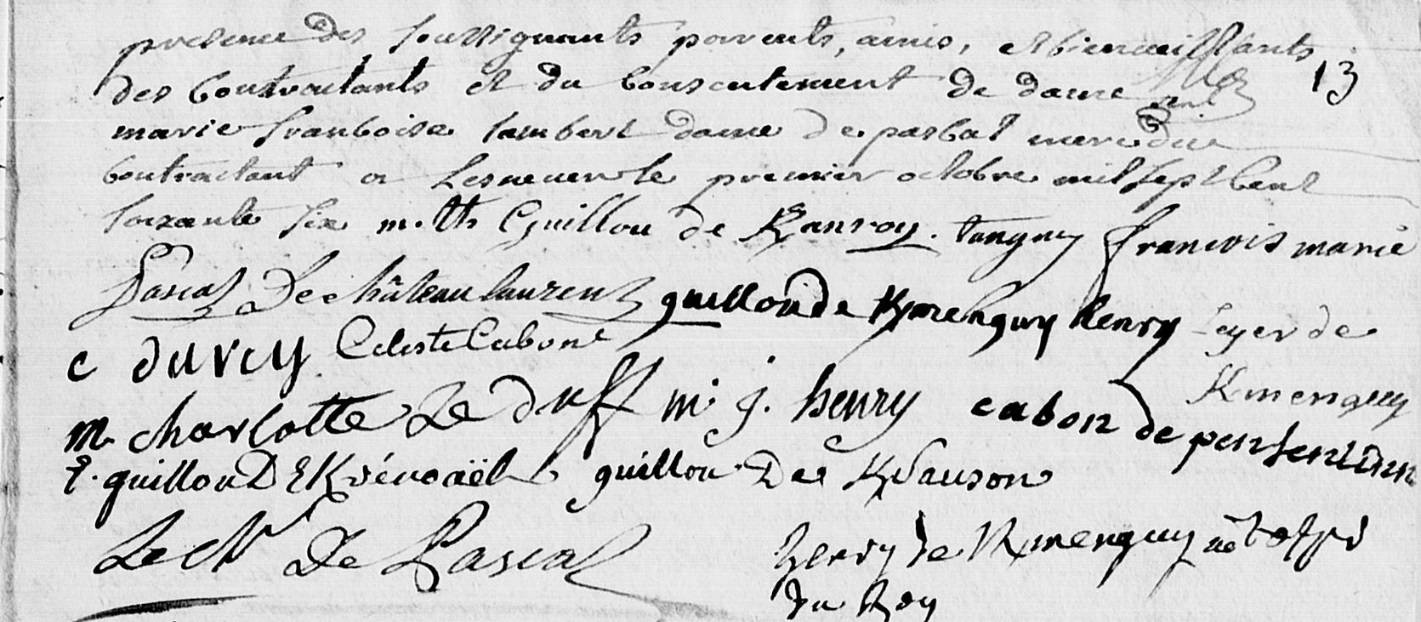 presence des soussignants parents, amis, et bienveillants
des Contractants et du Consentement de dame 13
marie francoise lambert dame de pascal mere du
Contractant a Lesneven le premier octobre mil sept Cent
soixante six m. th Guillou de Kanroy. tanguy francois marie
Pascal De châteaulaurent guillou de Kmenguy henry Loyer de
Kmenguy
c durey Celeste Cabon
m. charlotte Le duff m. j. henry cabon de pensentenn
E. guillou DE Krénoaël guillou De Kdauson
Le chr De Pascal henry de Kmenguy
du Roy